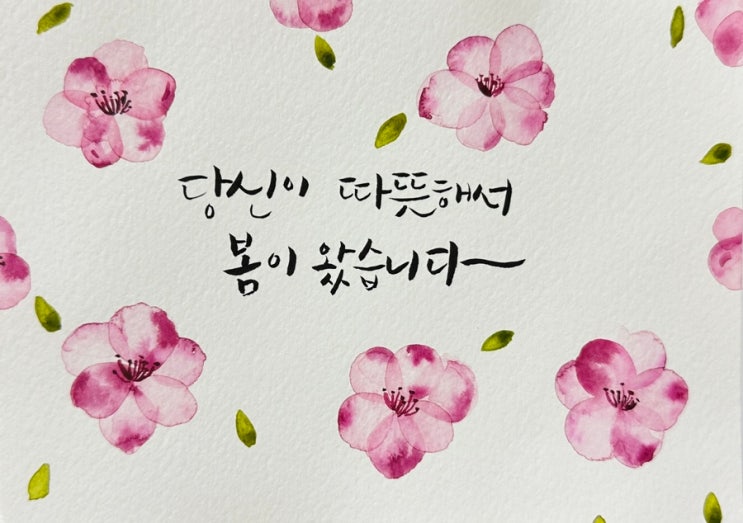 당신이 따뜻해서
봄이 왔습니다~